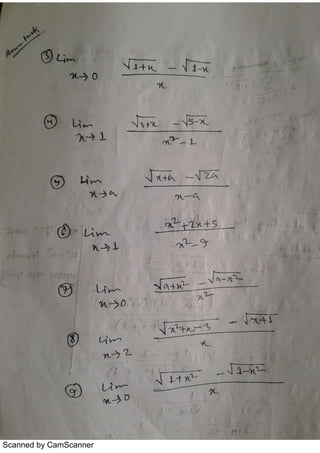 Home work
③ Lim x→0 (√(1+x) − √(1-x)) / x
④ Lim x→1 (√(3+x) − √(5-x)) / (x² − 1)
⑤ Lim x→a (√(x+a) − √(2a)) / (x-a)
⑥ Lim x→1 (x²+2x+5) / (x²-9)
⑦ Lim x→0 (√(a+x²) − √(a-x²)) / x²
⑧ Lim x→2 (√(x²+x-3) − √(x+1)) / x
⑨ Lim x→0 (√(1+x²) − √(1-x²)) / x
Scanned by CamScanner